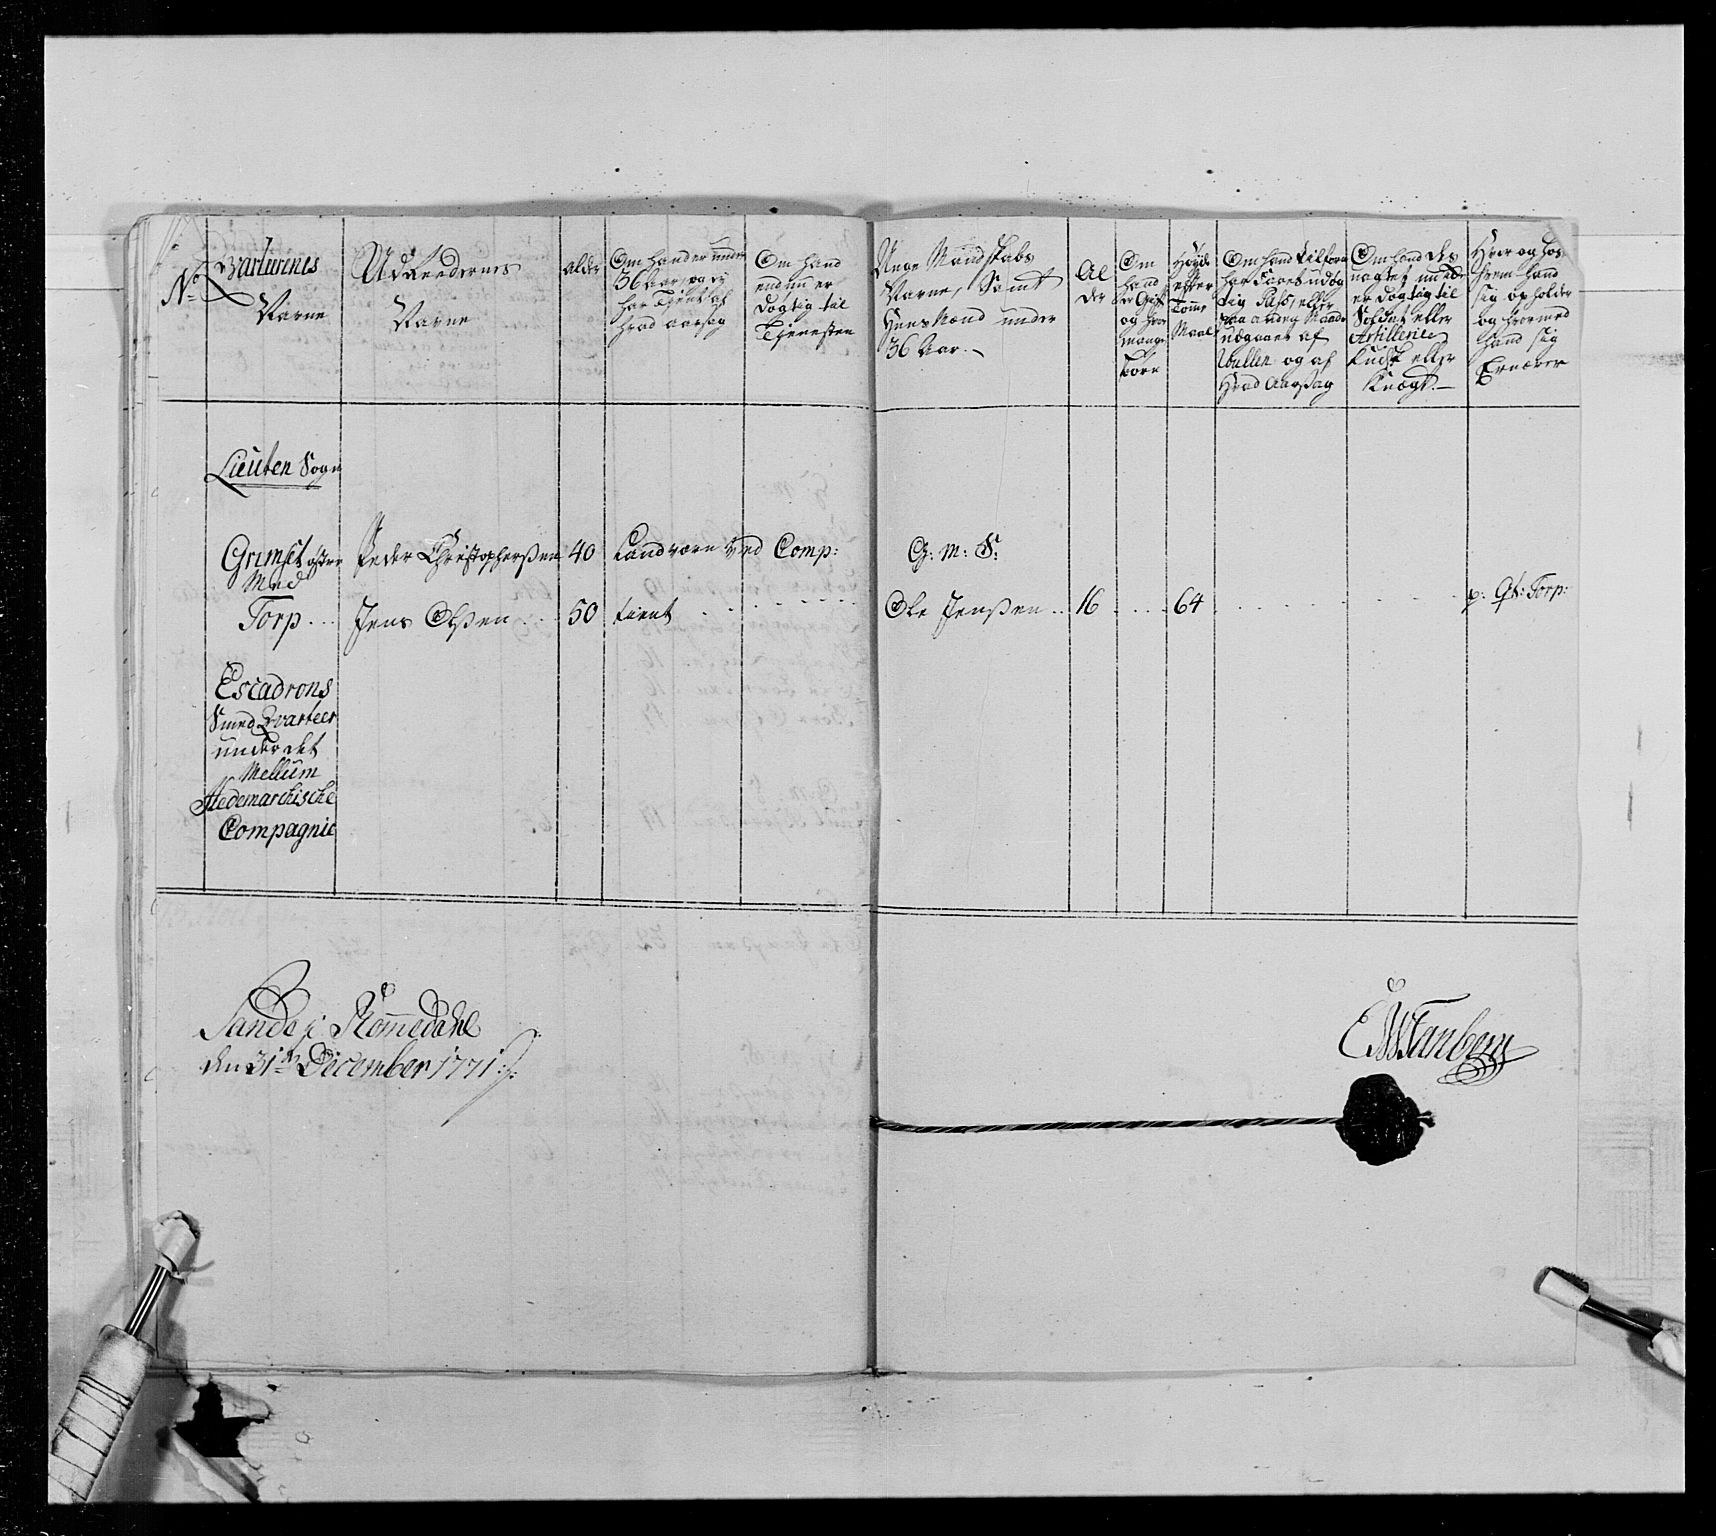 No
Qvarterenes
Navne
Udreedernes
Navne
alder
Om hand er under
36 Aar, da
har tient af
hvad aarsag
Om hand
endnu er
dögtig til
Tjenesten
Unge Mandskabs
Navne, Samt
under
36 Aar.
Al
der
Om
hand
er Gift
og hvor
mange
Börn
Höyde
efter
Tomme
Maal
Om hand tilforn
har faaet udög
tig Pass, eller
paa anden Maade
udgaaet af
Rullen og af
hvad Aarsag
Om hand
er dögtig til
Soldat eller
Artillerie
Kudsk eller
Knægt.
Hvor og hos
hvem hand
sig opholder
og hvormed
hand sig
Ernærer
Lieuten Sogn
Grimset östre Peder Christophersen 40 Landværn ved Comp: G: M: S:
Med
Torp... Jens Olsen... 50 tient ...... Ole Jensen.. 16 .... 64 ...... p: Qt: Torp:
Escadrons
Smed Qvarteer
under det
Mellum
Hedemarchische
Compagnie
Sande i Rommedahl
den 31te December 1771